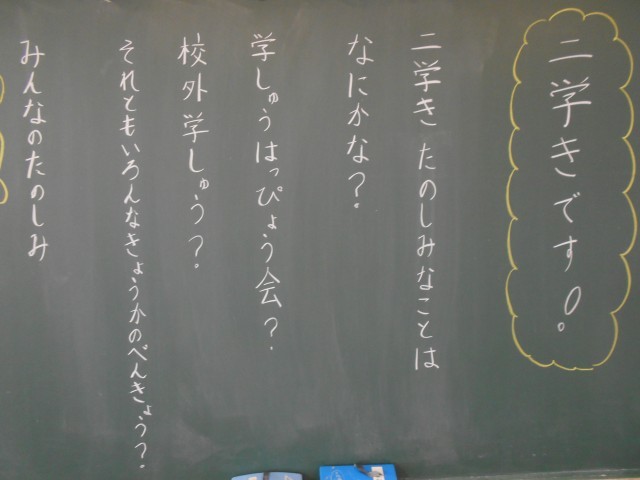 二学きです!
二学き たのしみなことは
なにかな?
学しゅうはっぴょう会?
校外学しゅう?
それともいろんなきょうかのべんきょう?
みんなのたのしみ